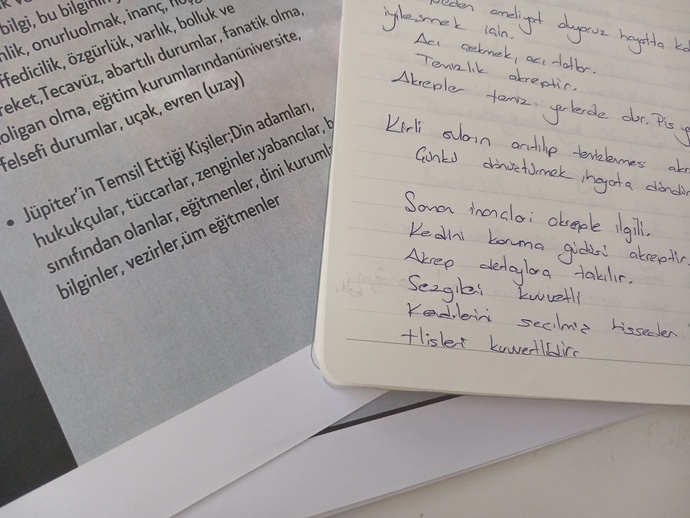 bilgi, bu bilginin
nlik, onurluolmak, inanç,
ffedicilik, özgürlük, varlık, bolluk ve
reket,Tecavüz, abartılı durumlar, fanatik olma,
oligan olma, eğitim kurumlarındanüniversite,
felsefi durumlar, uçak, evren (uzay)
• Jüpiter'in Temsil Ettiği Kişiler;Din adamları,
hukukçular, tüccarlar, zenginler,yabancılar, b
sınıfından olanlar, eğitmenler, dini kuruml
bilginler, vezirler,üm eğitmenler
Neden ameliyat oluyoruz hayatta
iyileşmek için.
Acı çekmek, acı tatlar.
Temizlik akreptir.
Akrepler temiz yerlerde dur. Pis
Kirli suların arıtılıp temizlenmesi akr
Çünkü dönüştürmek, hayata döndür
Sonra inançları akreple ilgili.
Kedini koruma güdüsü akreptir.
Akrep detaylara takılır.
Sezgileri kuvvetli
Kendilerini seçilmiş hisseden
Hisleri kuvvetlidir